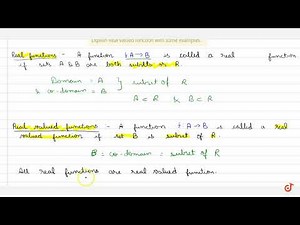 Explain real valued function with some examples.
Real functions - A function f:A→B is called a real function
if set A & B are both subsets of R.
Domain = A
& co-domain = B } subset of R
A ⊂ R & B ⊂ R
Real valued functions - A function f:A→B is called a real
valued function if set B is subset of R.
B = co-domain = subset of R
All real functions are real valued function.